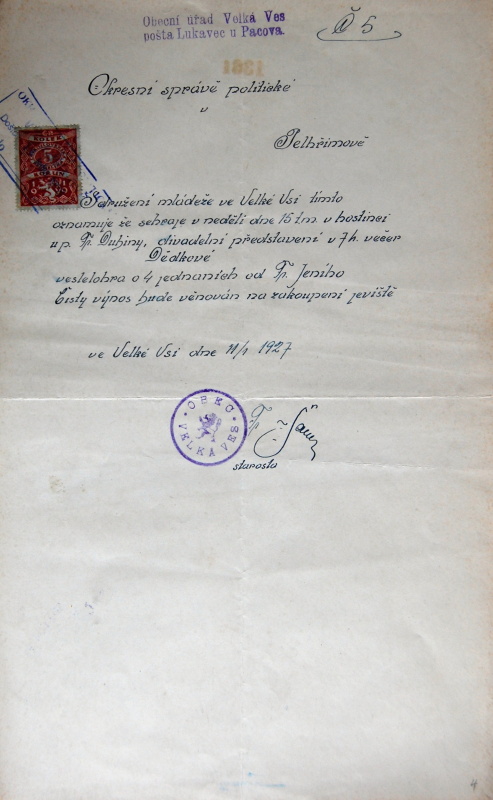 Obecní úřad Velká Ves
pošta Lukavec u Pacova.
Č 5
1361
Okresní správě politické
v
Pelhřimově
KOLEK
5
KORUN
1919
Sdružení mládeže ve Velké Vsi tímto
oznamuje že sehraje v neděli dne 15 t.m. v hostinci
u p. Fr. Duhiny, divadelní představení v 7 h. večer
Dědkové
veslelohra o 4 jednaních od Fr. Jeního
Čistý výnos bude věnován na zakoupení jeviště
ve Velké Vsi dne 11/1 1927
OBEC
VELKÁ VES
Fr.
starosta
4